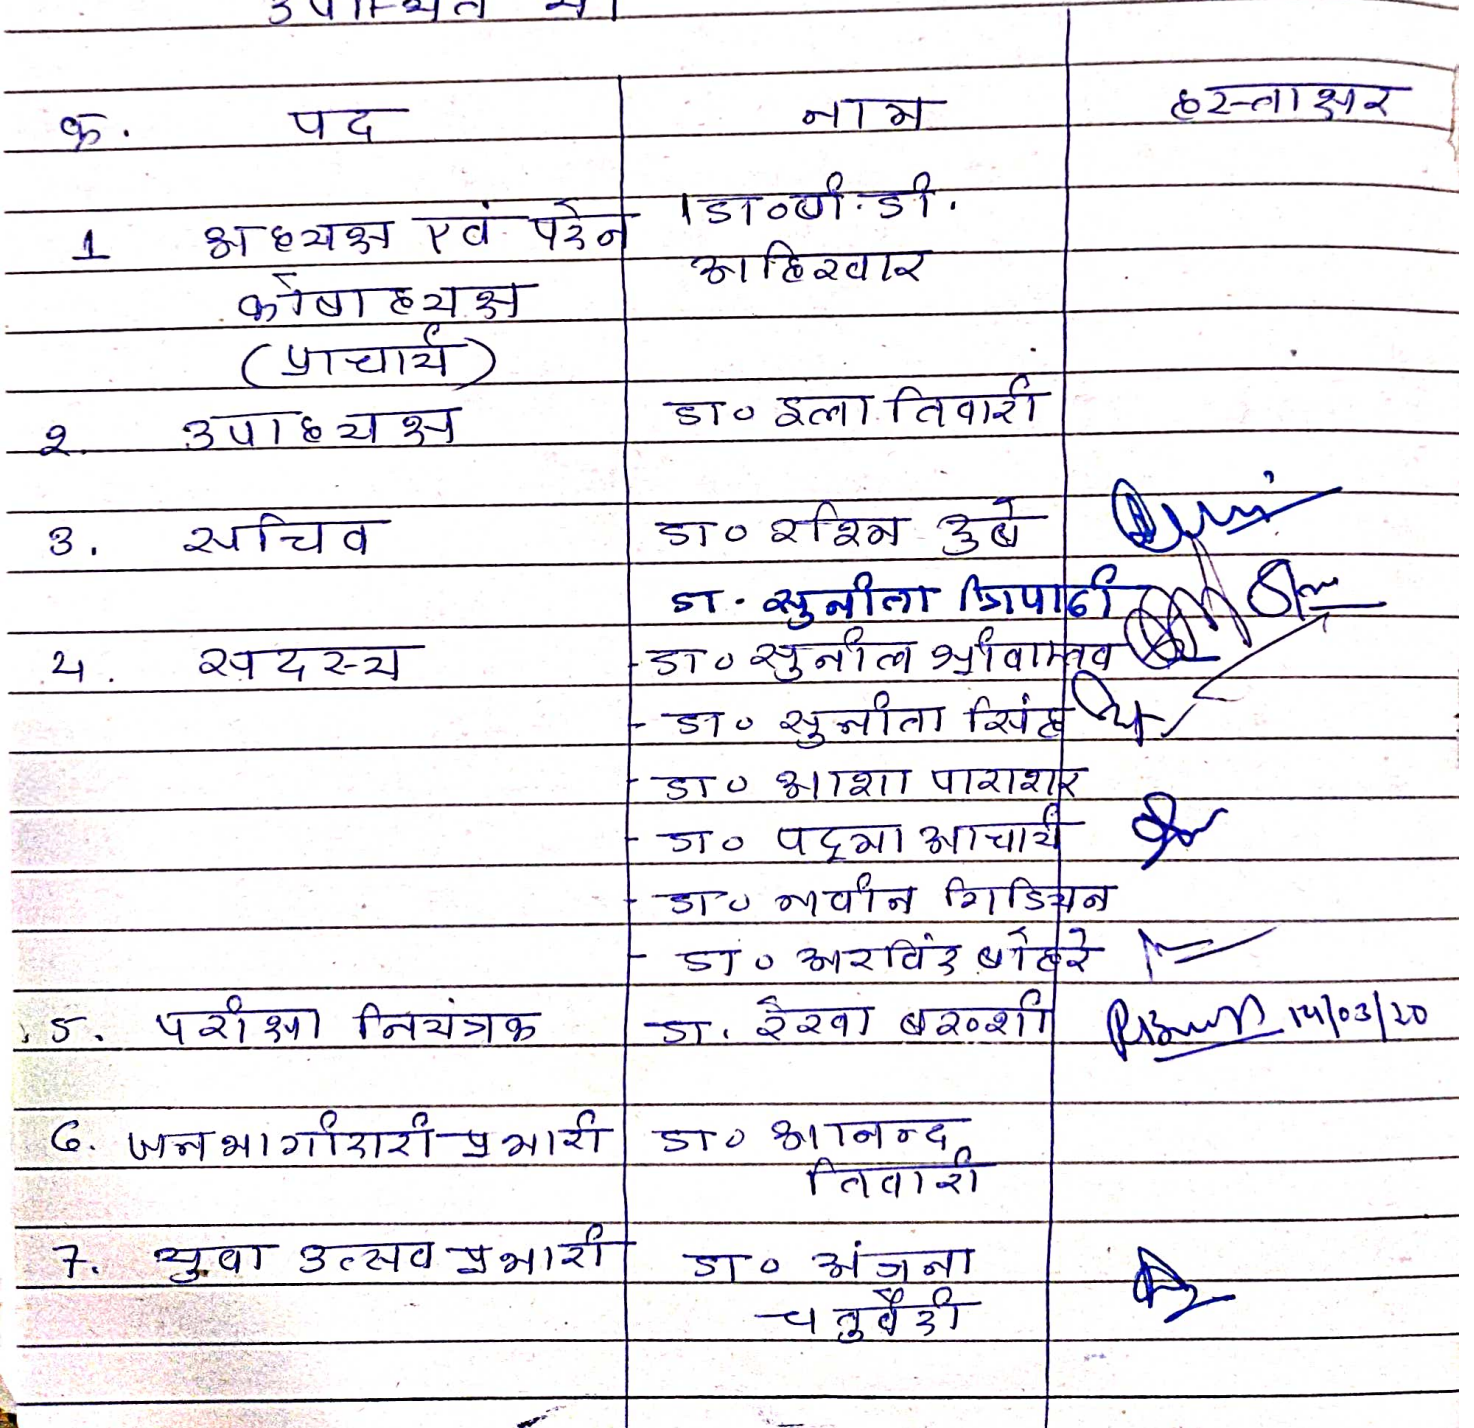 क्र. पद नाम हस्ताक्षर
1 अध्यक्ष एवं पदेन डा० बी. डी.
कोषाध्यक्ष अहिरवार
(प्राचार्य)
2. उपाध्यक्ष डा० इला तिवारी
3. सचिव डा० रश्मि दुबे
डा. सुनीता त्रिपाठी
4. सदस्य - डा० सुनील श्रीवास्तव
- डा० सुनीता सिंह
- डा० आशा पाराशर
- डा० पद्मा आचार्य
- डा० नवीन गिडियन
- डा० अरविंद बोहरे
5. परीक्षा नियंत्रक डा. रेखा बख्शी 14/03/20
6. जनभागीदारी प्रभारी डा० आनन्द
तिवारी
7. युवा उत्सव प्रभारी डा० अंजना
चतुर्वेदी